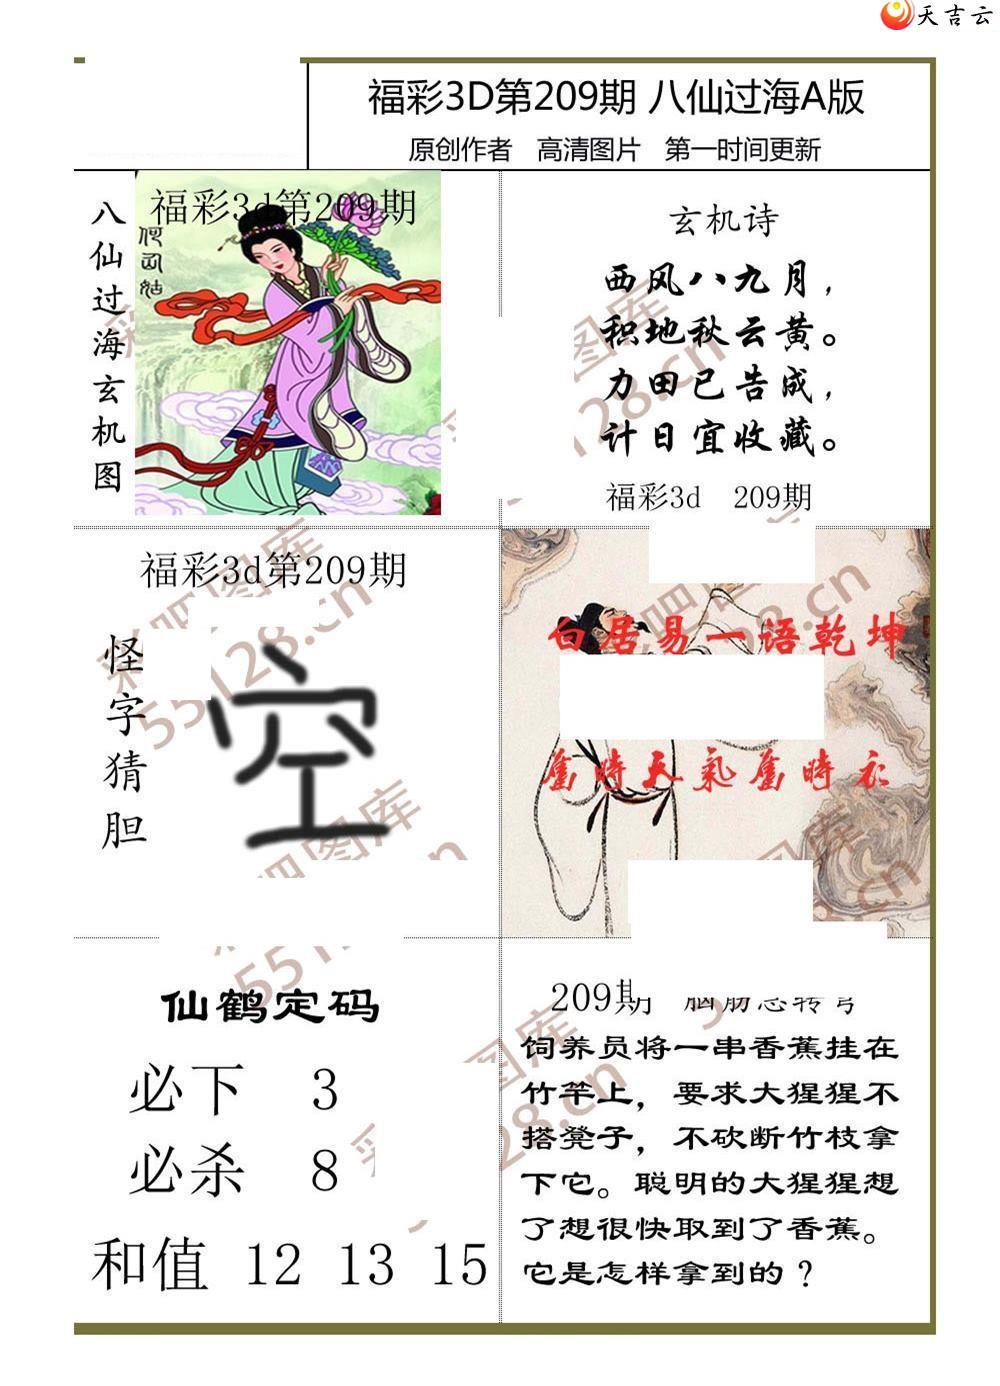 天吉云
福彩3D第209期 八仙过海A版
原创作者 高清图片 第一时间更新
八仙过海玄机图
福彩3d第209期
何仙姑
玄机诗
西风八九月，
积地秋云黄。
力田已告成，
计日宜收藏。
福彩3d 209期
福彩3d第209期
怪字猜胆
空
白居易一语乾坤
旧时天气旧时衣
仙鹤定码
必下 3
必杀 8
和值 12 13 15
209期 脑筋急转弯
饲养员将一串香蕉挂在
竹竿上，要求大猩猩不
搭凳子，不砍断竹枝拿
下它。聪明的大猩猩想
了想很快取到了香蕉。
它是怎样拿到的？